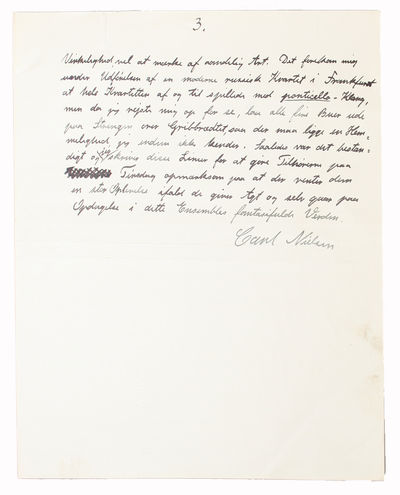 3.
Virkelighed, vel at mærke af aandelig Art. Det forekom mig
under Udførelsen af en moderne russisk Kvartet i Frankfurt
at hele Kvartetten af og til spillede med ponticello-Klang,
men da jeg rejste mig op for at se, laa alle fire Buer ude
paa Strengen over Gribbrædtet, saa der maa ligge en Hem-
melighed jeg endnu ikke kender. Saaledes var det bestan-
digt og jeg skriver disse Linier for at gøre Tilhørerne paa
Tirsdag opmærksom paa at der venter dem
en stor Oplevelse ifald de giver Agt og selv gaar paa
Opdagelse i dette Ensembles fantasifulde Verden
Carl Nielsen